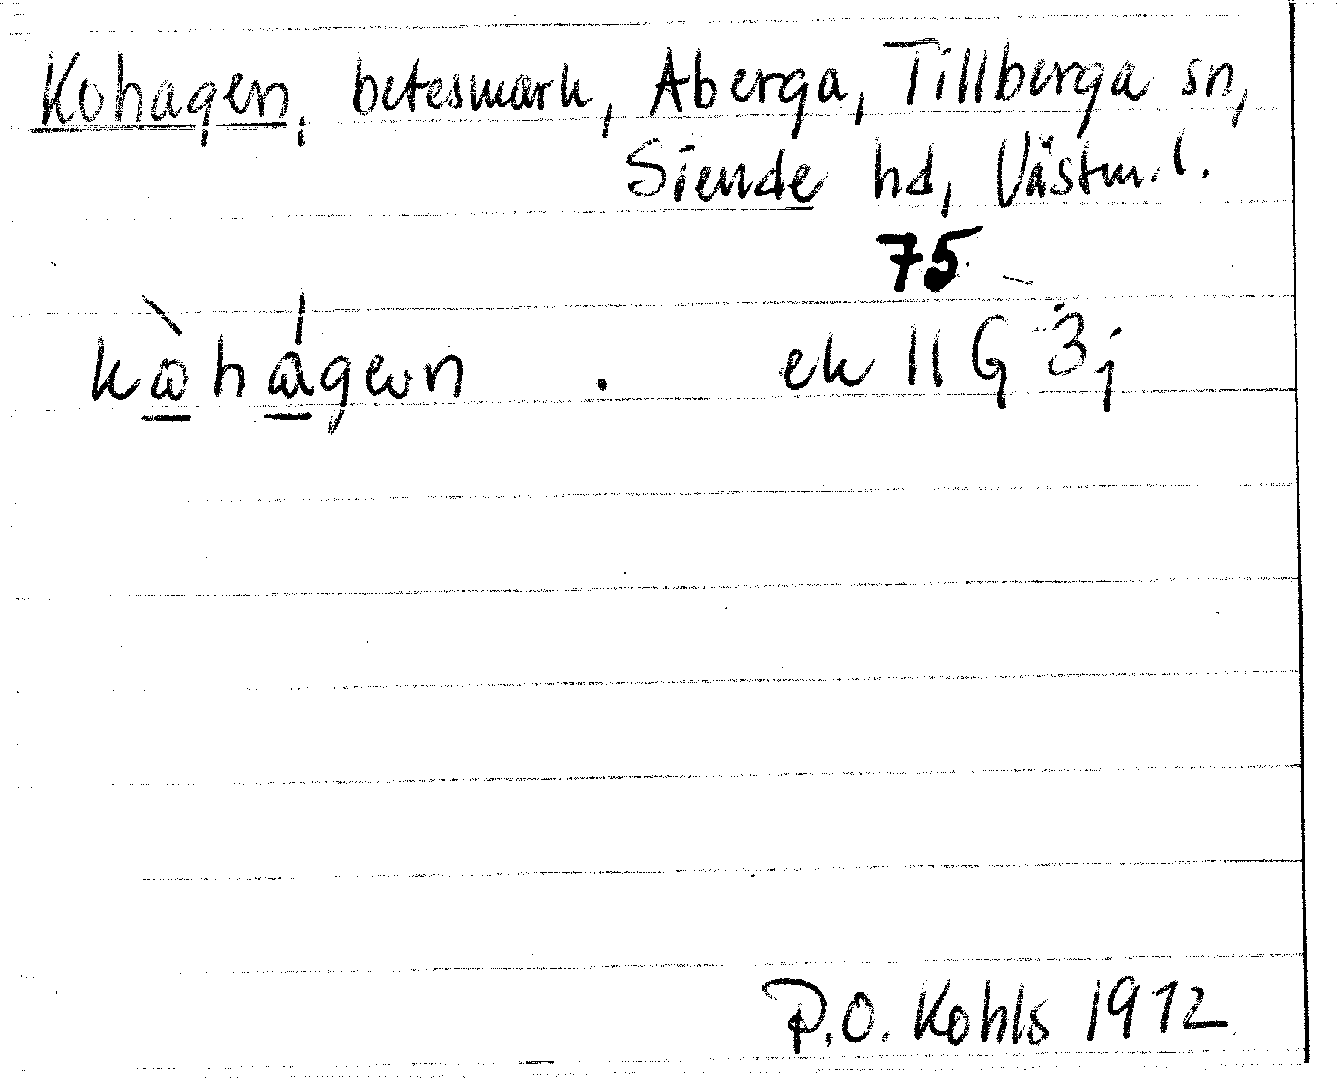 Kohagen, betesmark, Aberga, Tillberga sn,
Siende hd, Västm. l.
75
kòhágen . ek 11 G 3j
P.O. Kohls 1972